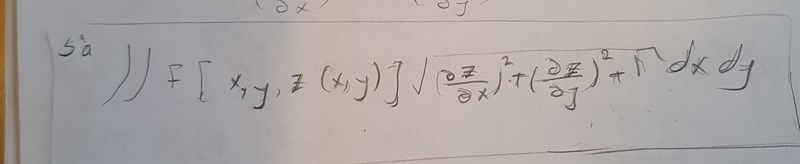 (∂x) (∂y)
5a ∬ F [ x, y, z (x, y) ] √(∂z/∂x)² + (∂z/∂y)² + 1 dx dy